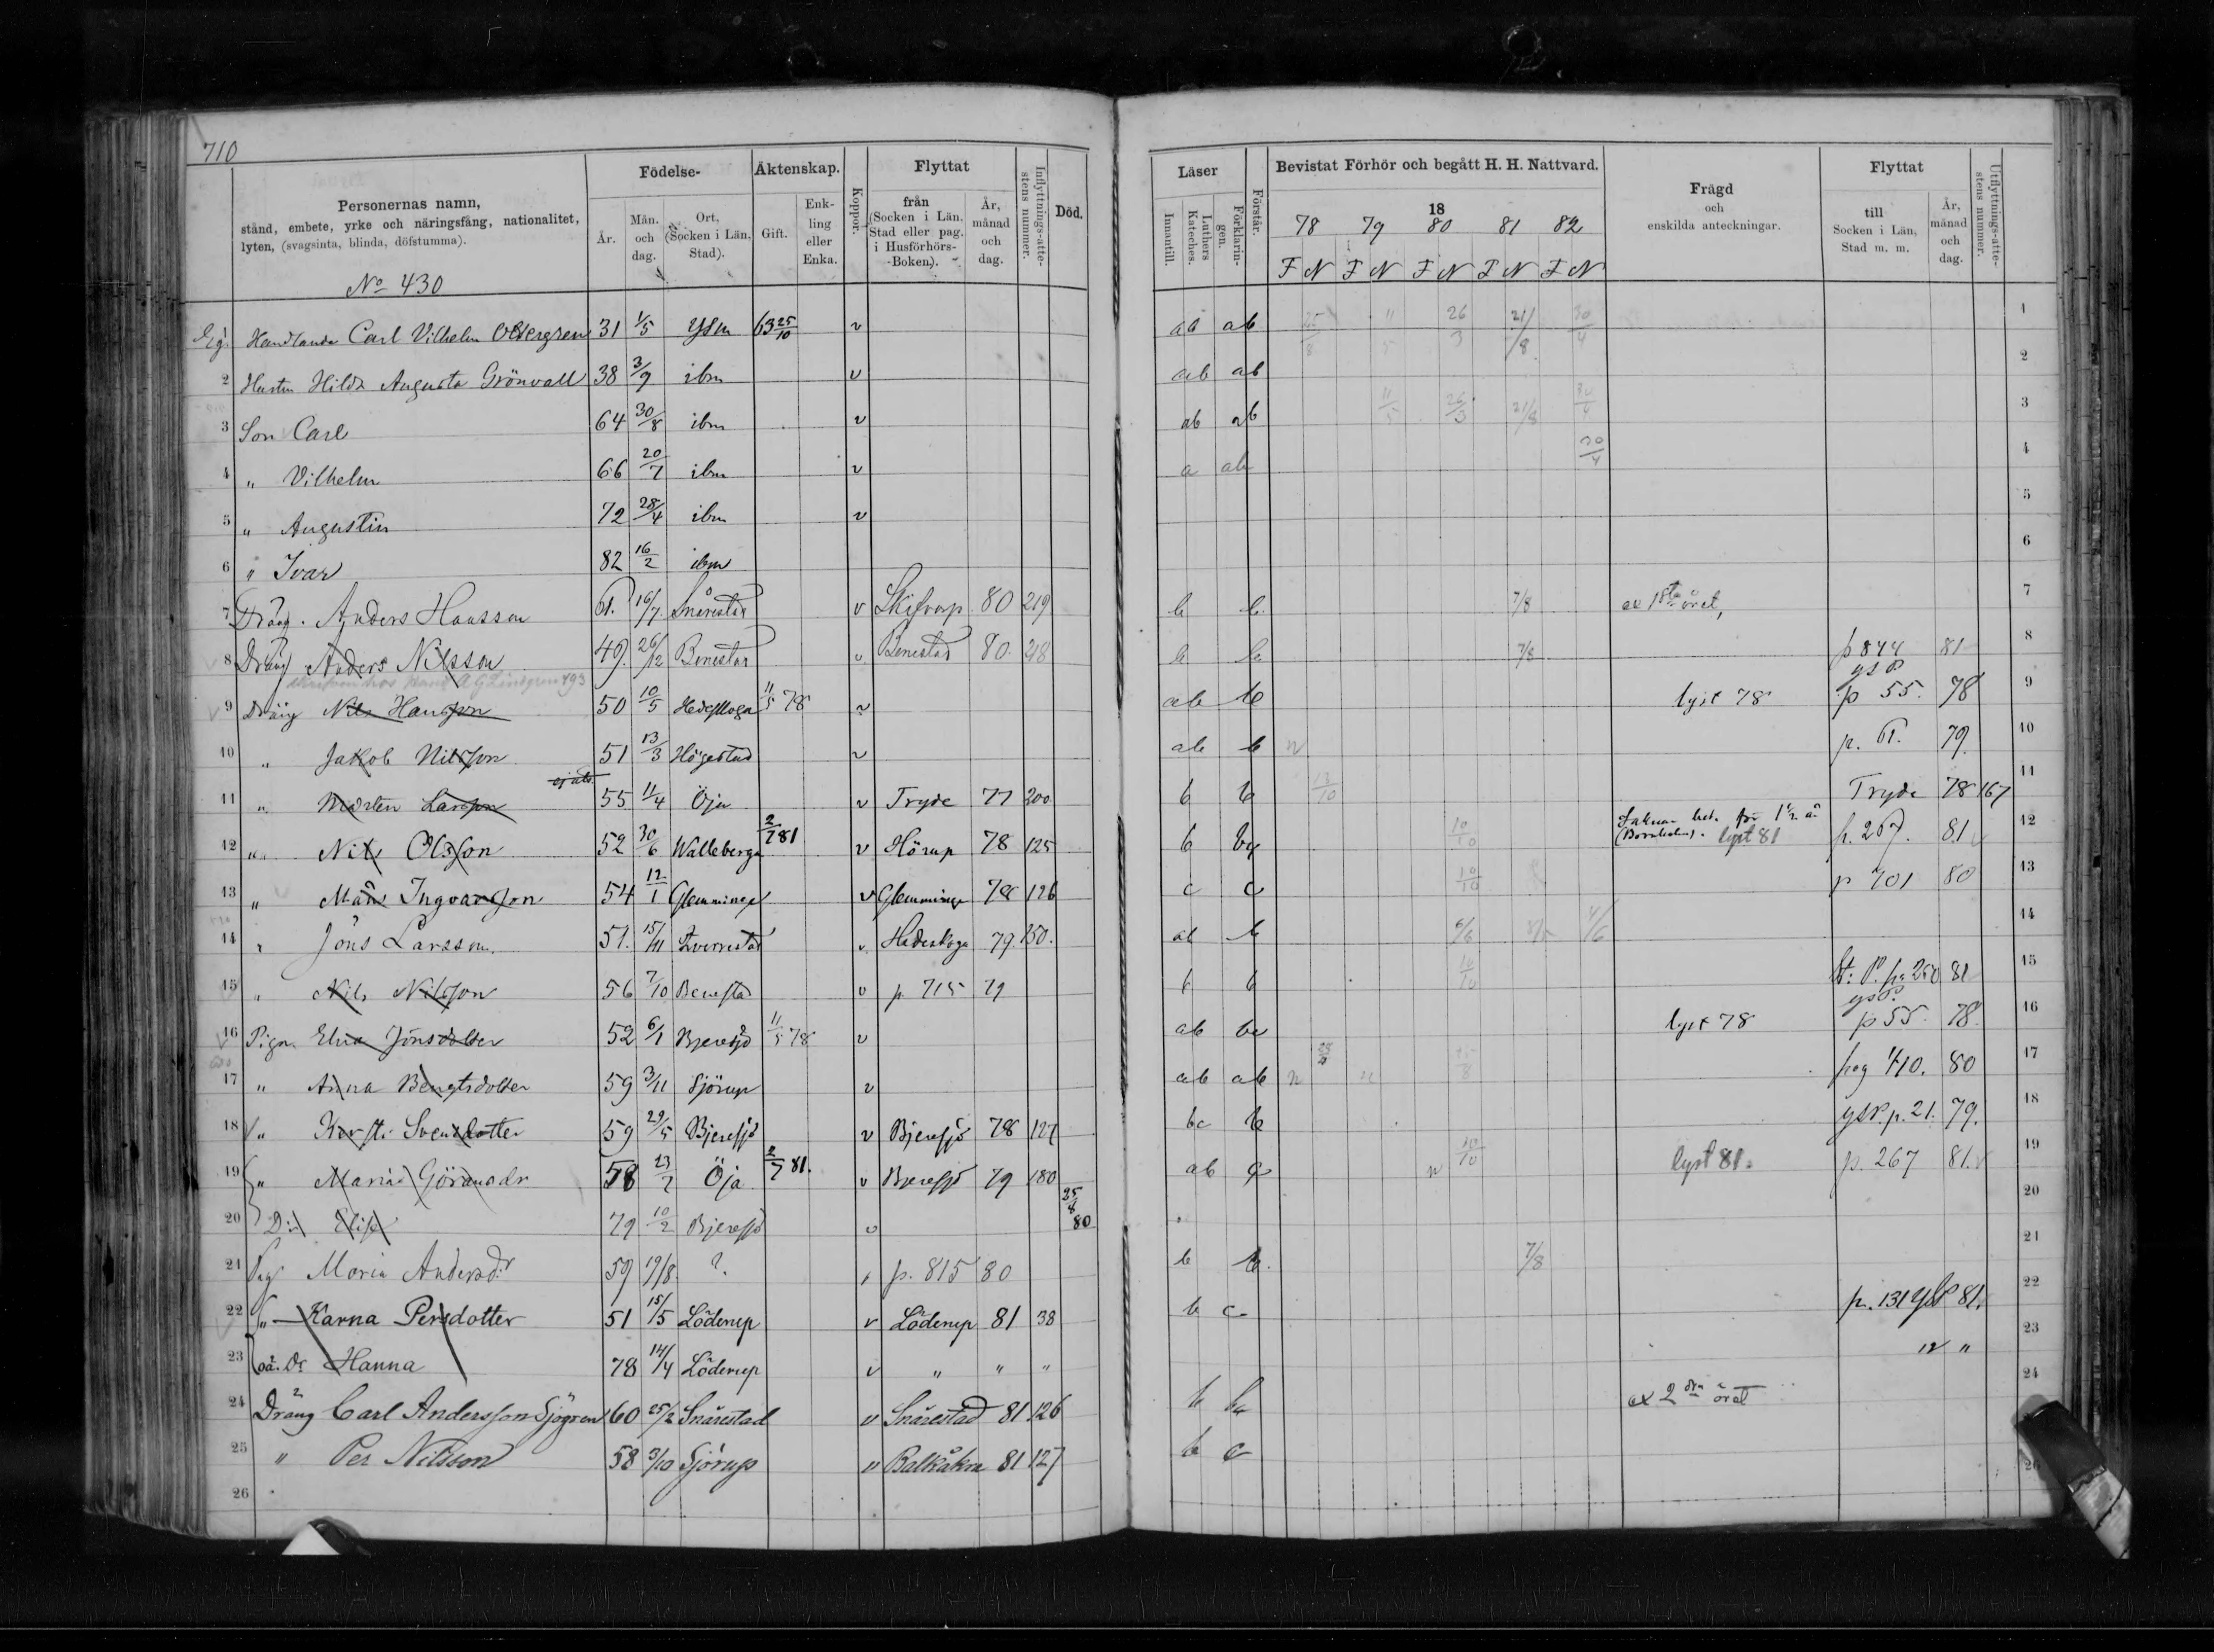 710
Personernas namn,
stånd, embete, yrke och näringsfång, nationalitet,
lyten, (svagsinta, blinda, döfstumma).
No 430
Födelse-
År.
Mån. och dag.
Ort, (Socken i Län, Stad).
Äktenskap.
Gift.
Enkling eller Enka.
Koppor.
Flyttat
från (Socken i Län, Stad eller pag. i Husförhörs-Boken).
År, månad och dag.
Inflyttnings-attestens nummer.
Död.
Läser
Innantill.
Luthers Kateches.
Förklaringen.
Förstår.
Bevistat Förhör och begått H. H. Nattvard.
18
78 79 80 81 82
F N F N F N F N F N
Frägd
och
enskilda anteckningar.
Flyttat
till Socken i Län, Stad m. m.
År, månad och dag.
Utflyttnings-attestens nummer.
Eg. Handlande Carl Vilhelm 31 1/5 Ystd 63 25/10 v ab ab 25/8 11/5 26/3 21/8 30/4 1
2 Hustru Hilda Augusta Grönvall 38 3/9 ibm v ab ab 2
3 Son Carl 64 30/8 ibm v ab ab 11/5 26/3 21/8 30/4 3
4 " Vilhelm 66 20/7 ibm v a ab 30/4 4
5 " Augustin 72 28/4 ibm v 5
6 " Ivar 82 16/2 ibm 6
7 Dräng. Anders Hansson 61. 16/7 Snårestad v Skifvarp 80 219 b b 7/8 ex 1sta öret, 7
8 Dräng Anders Nilsson 49. 26/12 Benestad v Benestad 80. 218 b b 7/8 p 844 81 8
9 Dräng Nils Hansson 50 10/5 Hedeskoga 11/5 78 v ab b lyst 78 ysP p 55. 78 9
10 " Jakob Nilsson 51 13/3 Högestad v ab b n p. 61. 79. 10
11 " Mårten Larsson 55 11/4 Öja v Tryde 77 200 b b 13/10 Tryde 78 167 11
12 " Nils Olsson 52 30/6 Walleberga 2/7 81 v Hörup 78 125 b 10/10 (Bornholm). lyst 81 p. 267. 81 12
13 " Måns Ingvarsson 54 12/1 Glemminge v Glemminge 78 126 c c 10/10 p 701 80 13
14 " Jöns Larsson. 51. 15/11 v. Hedeskoga 79. 150. ab b 6/6 14
15 " Nils Nilsson 56 7/10 Benestad v p. 715 79 b b 10/10 St. P. pg 250 81 15
16 Pigan Elna Jönsdotter 52 6/1 Bjeresjö 11/5 78 v ab bc lyst 78 ysP. p 55. 78. 16
17 " Anna Bengtsdotter 59 3/11 Sjörup v ab ab n pag 410. 80 17
18 " Kersti Svensdotter 59 29/5 Bjeresjö v Bjeresjö 78 127 bc b ysP. p. 21. 79. 18
19 " Maria Göransdr 58 23/7 Öja 2/7 81. v Bjeresjö 79 180 ab c n 10/10 lyst 81. p. 267 81. 19
20 D:r Elise 79 10/2 Bjeresjö v 25/8 80 20
21 Pig Maria Andersdr 59 19/8. ? p. 815 80 b b. 7/8 21
22 " Karna Persdotter 51 15/5 Löderup v Löderup 81 38 b c p. 131 YstP 81. 22
23 oä. Dr Hanna 78 14/4 Löderup v " " " " " 23
24 Dräng Carl Andersson Sjögren 60 25/2 Snårestad v Snårestad 81 126 b ex 2dra öret 24
25 " Per Nilsson 58 3/10 Sjörup v Balkåkra 81 127 b c
26